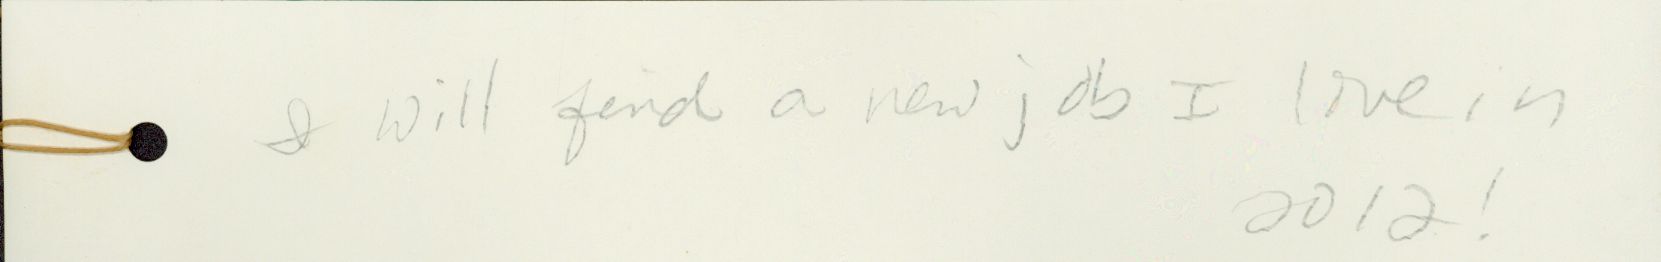 I will find a new job I love in
2012!